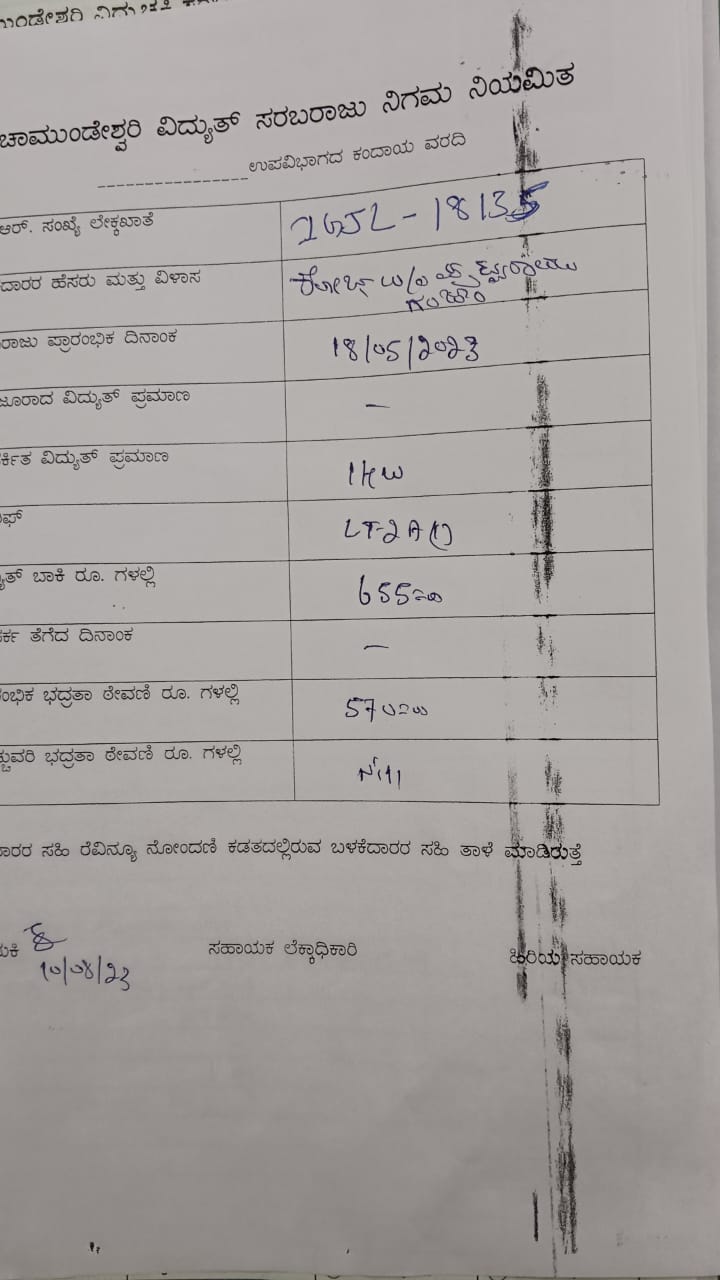 ಚಾಮುಂಡೇಶ್ವರಿ ವಿದ್ಯುತ್ ಸರಬರಾಜು ನಿಗಮ ನಿಯಮಿತ
ಉಪವಿಭಾಗದ ಕಂದಾಯ ವರದಿ
ಆರ್. ಸಂಖ್ಯೆ ಲೇಕ್ಕಖಾತೆ
ದಾರರ ಹೆಸರು ಮತ್ತು ವಿಳಾಸ
ರಾಜು ಪ್ರಾರಂಭಿಕ ದಿನಾಂಕ 18/05/2023
ಜೂರಾದ ವಿದ್ಯುತ್ ಪ್ರಮಾಣ –
ರ್ಕಿತ ವಿದ್ಯುತ್ ಪ್ರಮಾಣ 1KW
ಿಫ್ LT-2A(1)
ಯುತ್ ಬಾಕಿ ರೂ. ಗಳಲ್ಲಿ 655=00
ರ್ಕ ತೆಗೆದ ದಿನಾಂಕ –
ಂಭಿಕ ಭದ್ರತಾ ಠೇವಣಿ ರೂ. ಗಳಲ್ಲಿ 570=00
ಚ್ಚುವರಿ ಭದ್ರತಾ ಠೇವಣಿ ರೂ. ಗಳಲ್ಲಿ Nill
ದಾರರ ಸಹಿ ರೆವಿನ್ಯೂ ನೋಂದಣಿ ಕಡತದಲ್ಲಿರುವ ಬಳಕೆದಾರರ ಸಹಿ ತಾಳೆ ಮಾಡಿರುತ್ತೆ
ಸಹಾಯಕ ಲೆಕ್ಕಾಧಿಕಾರಿ ಹಿರಿಯ ಸಹಾಯಕ
10/08/23